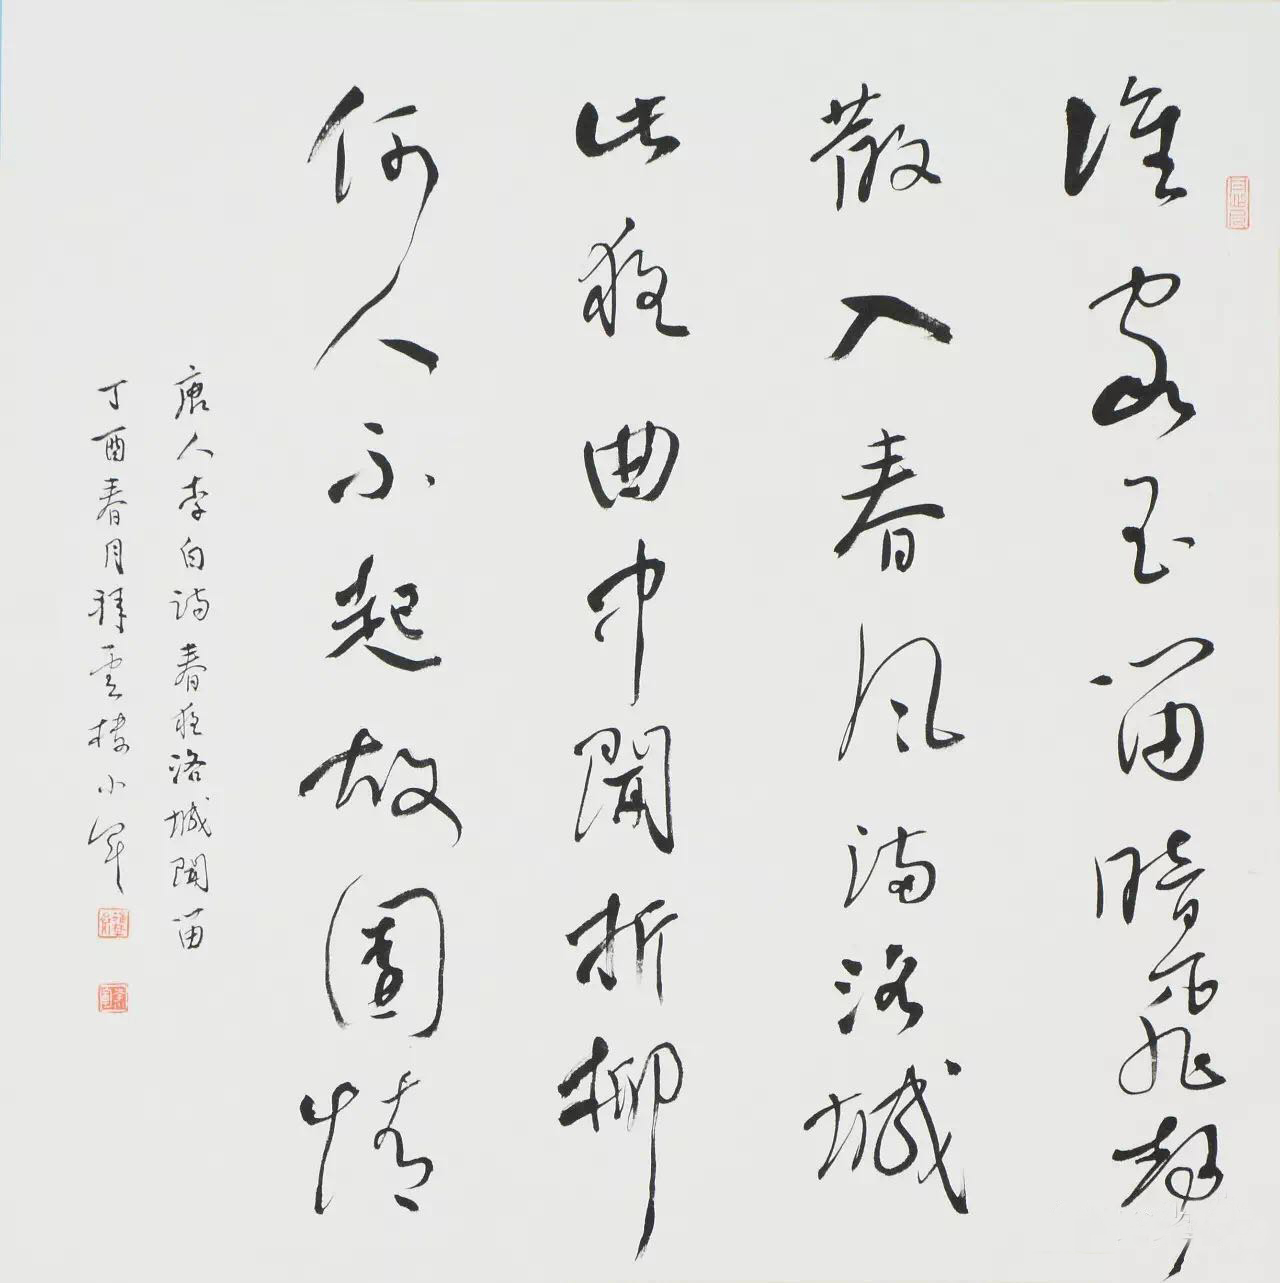 誰家玉笛暗飛聲
散入春風滿洛城
此夜曲中聞折柳
何人不起故園情
唐人李白詩春夜洛城聞笛
丁酉春月拜雲樓小軍